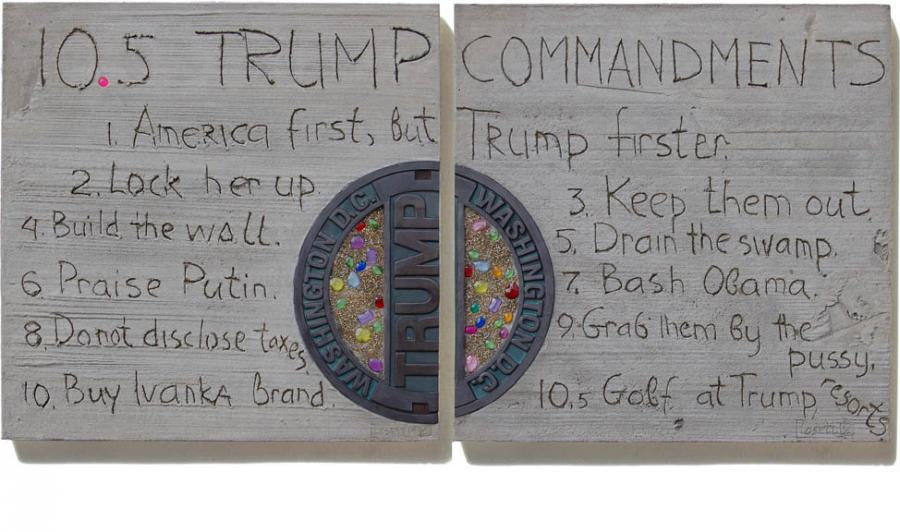 10.5 TRUMP COMMANDMENTS
1. AMERICA first, But TRUMP firster.
2. Lock her up.
3. Keep them out.
4. Build the wall.
5. Drain the swamp.
6. Praise Putin.
7. Bash Obama.
8. Do not disclose taxes
9. Grab them By the
pussy.
10. Buy IvankA Brand.
10.5 Golf at Trump resorts
WASHINGTON D.C.
TRUMP
WASHINGTON D.C.